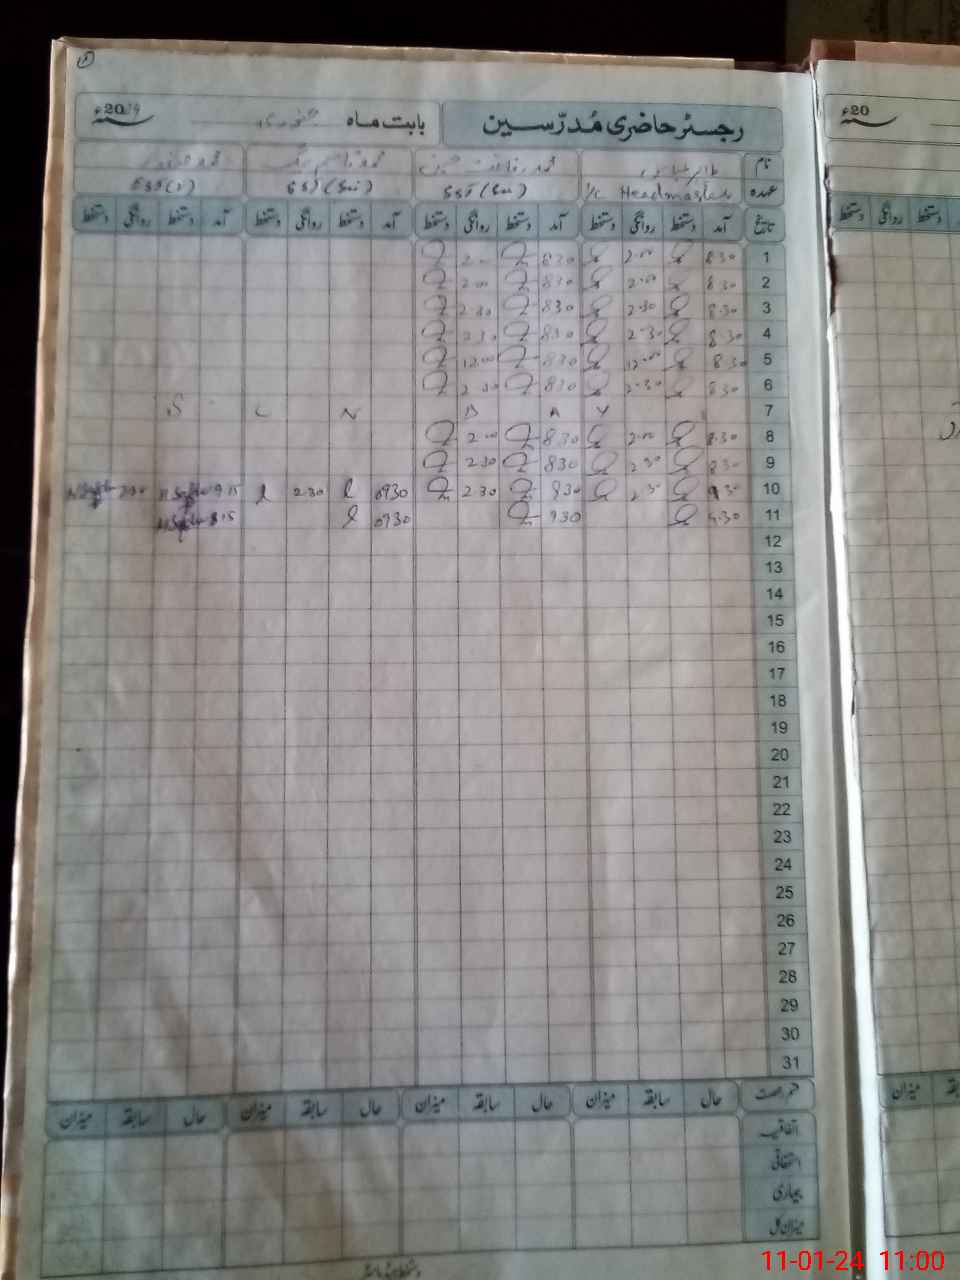 رجسٹر حاضری مُدرّسین بابت ماہ جنوری 2024ء
نام محمد رفاقت حسین محمد قاسم بیگ محمد صفدر
عہدہ I/c Headmaster SST (Sci) SST (Sci) SST (G)
تاریخ آمد دستخط روانگی دستخط آمد دستخط روانگی دستخط آمد دستخط روانگی دستخط آمد دستخط روانگی دستخط
1 8.30 2.00 830 2.00
2 8.30 2.00 830 2.00
3 8.30 2.30 830 2.30
4 8.30 2.30 830 2.30
5 8.30 12.00 830 12.00
6 8.30 2.30 830 2.30
7 S U N D A Y
8 8.30 2.00 830 2.00
9 8.30 2.30 830 2.30
10 9.30 2.30 930 2.30 0930 2.30 9.15 2.30
11 9.30 930 0930
12
13
14
15
16
17
18
19
20
21
22
23
24
25
26
27
28
29
30
31
رخصت حال سابقہ میزان حال سابقہ میزان حال سابقہ میزان حال سابقہ میزان
اتفاقیہ
استحقاقی
بیماری
میزان کل
دستخط ہیڈ ماسٹر
20ء
دستخط روانگی دستخط
میزان
11-01-24 11:00